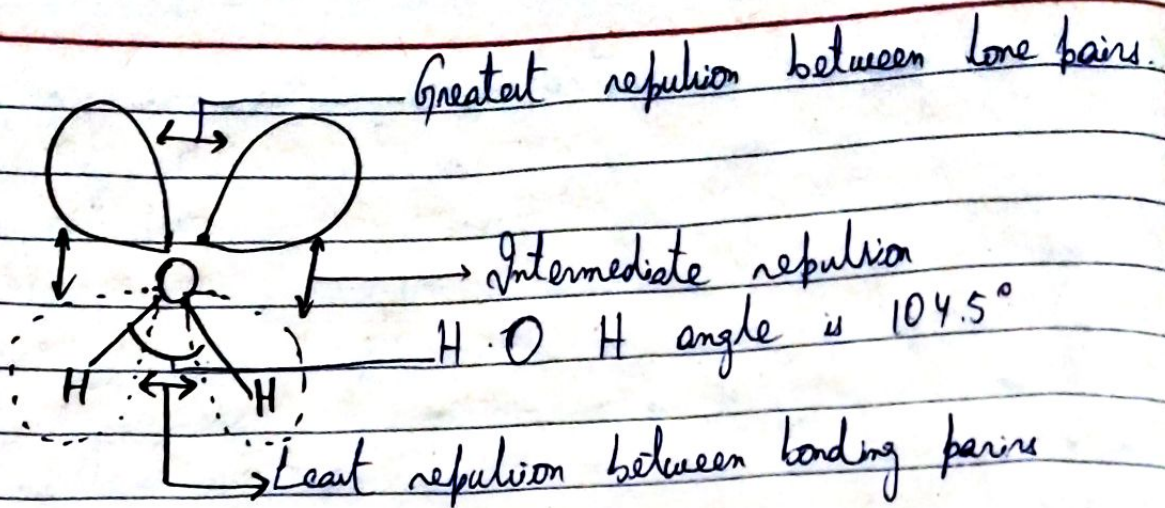 Greatest repulsion between lone pairs.
Intermediate repulsion
O
H O H angle is 104.5°
H H
Least repulsion between bonding pairs